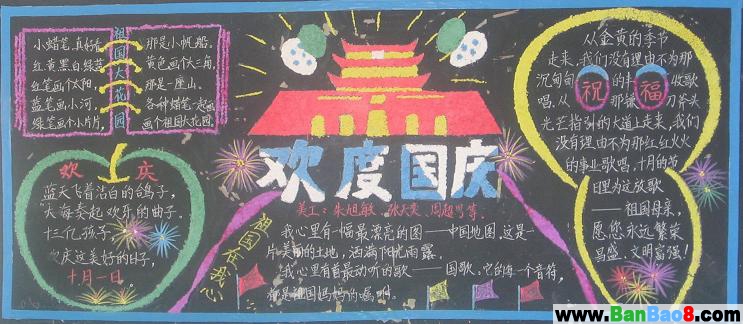 祖国大花园
小蜡笔,真好看
红黄黑白绿蓝
红笔画个太阳,
蓝笔画小河,
绿笔画个小片片,
那是小帆船。
黄色画个大三角,
那是一座山。
各种蜡笔一起画
画个祖国大花园。
欢 庆
蓝天飞着洁白的鸽子,
大海奏起欢乐的曲子。
十三亿孩子
欢庆这美好的日子,
十月一日。
欢度国庆
美工:朱旭敏
等.
祖国在我心
我心里有一幅最漂亮的图——中国地图。这是一
片美丽的土地,洒满阳光雨露。
我心里有首最动听的歌——国歌。它的每一个音符,
都是祖国妈妈的嘱咐。
祝福
从金黄的季节
走来,我们没有理由不为那
沉甸甸的丰收歌
唱。从那镰刀斧头
光芒指引的大道上走来,我们
没有理由不为那红红火火
的事业歌唱。十月的节
日里为这放歌
——祖国母亲,
愿您永远繁荣
昌盛、文明富强!
www.BanBao8.com